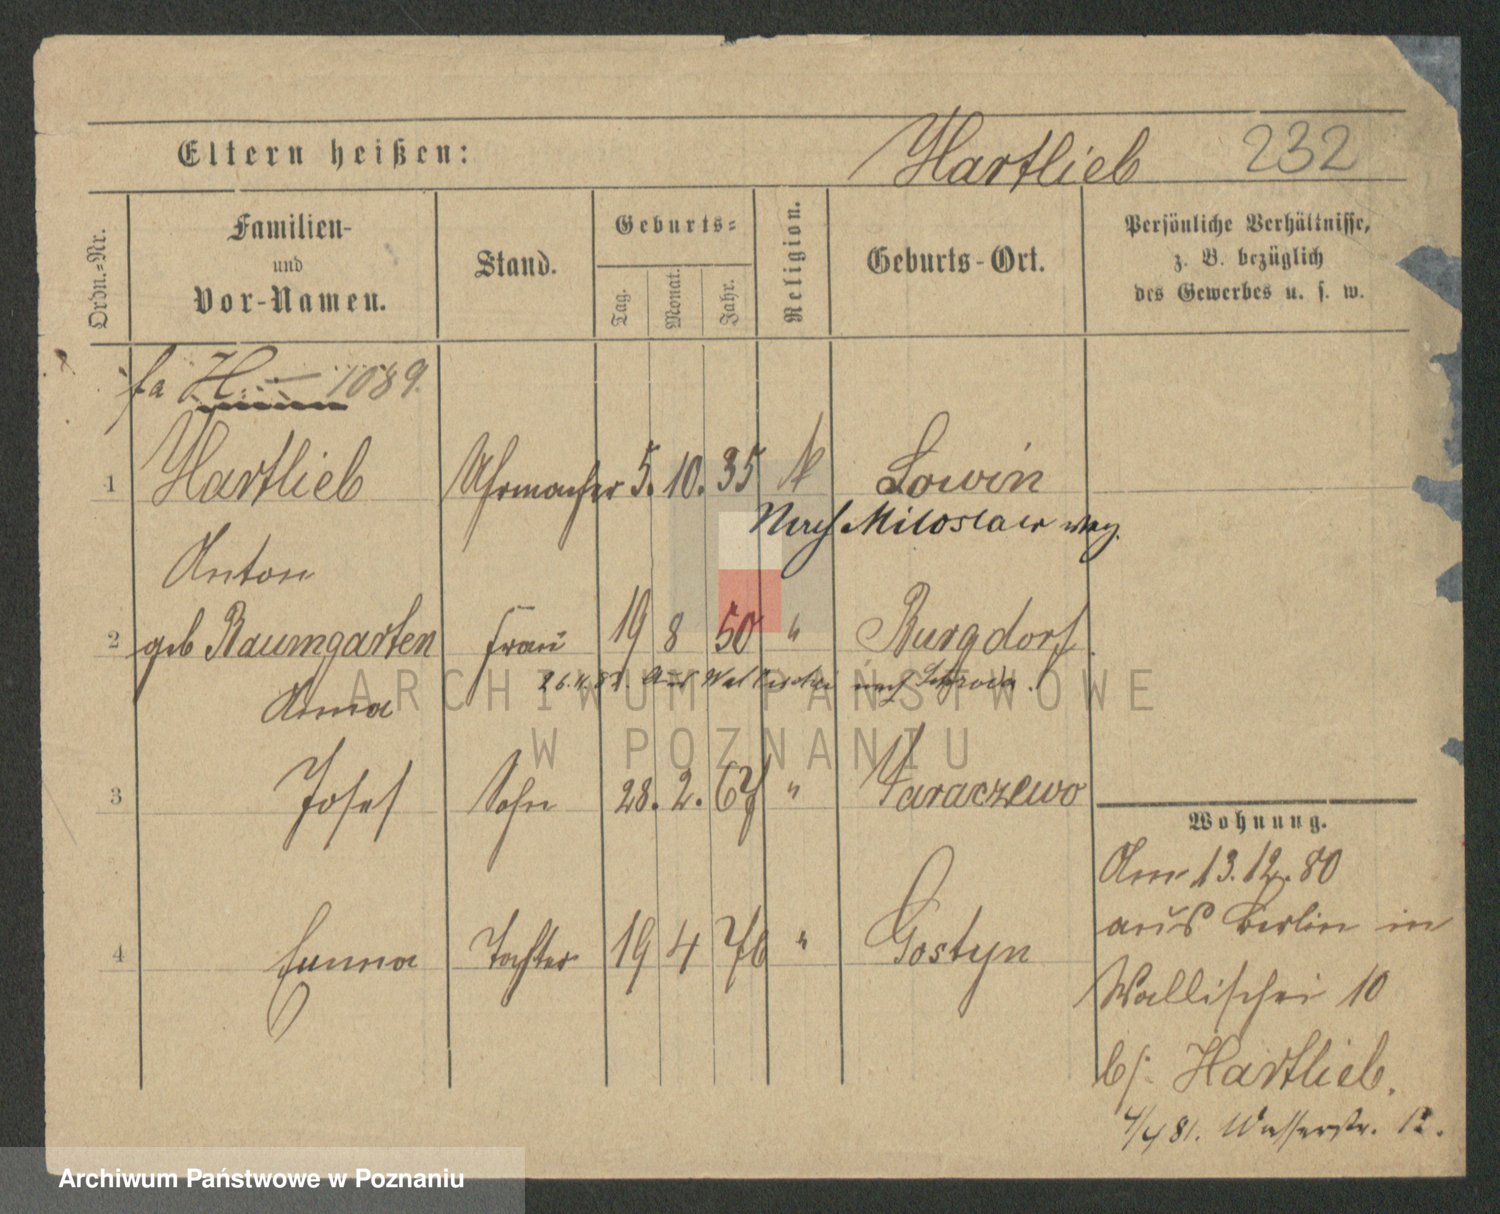 Eltern heißen:
Hartlieb 232
Ordn.=Nr.
Familien-
und
Vor-Namen.
Stand.
Geburts=
Tag.
Monat.
Jahr.
Religion.
Geburts-Ort.
Persönliche Verhältnisse,
z. B. bezüglich
des Gewerbes u. s. w.
fa H. — 1089.
1 Hartlieb Uhrmacher 5. 10. 35 k Lowin
Nach Miloslaw weg.
Anton
2 geb Baumgarten Frau 19 8 50 " Burgdorf
Aus Wallischei nach Schroda.
Anna
3 Josef Sohn 28. 2. 67 " Jaraczewo
4 Emma Tochter 19 4 76 " Gostyn
Wohnung.
Am 13.12.80
aus Berlin in
Wallischei 10
b/. Hartlieb.
4/4 81. Wasserstr. 12.
ARCHIWUM PAŃSTWOWE
W POZNANIU
Archiwum Państwowe w Poznaniu